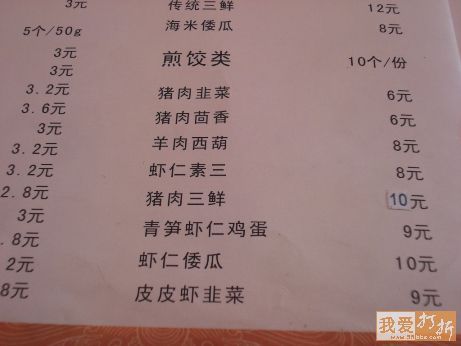 3元 传统三鲜 12元
5个/50g 海米倭瓜 8元
3元 煎饺类 10个/份
3元
3.2元 猪肉韭菜 6元
3.6元 猪肉茴香 6元
3元 羊肉西葫 8元
3.2元 虾仁素三 8元
3.2元 猪肉三鲜 10元
2.8元 青笋虾仁鸡蛋 9元
3元 虾仁倭瓜 10元
.8元 皮皮虾韭菜 9元
2元
8元
我爱打折